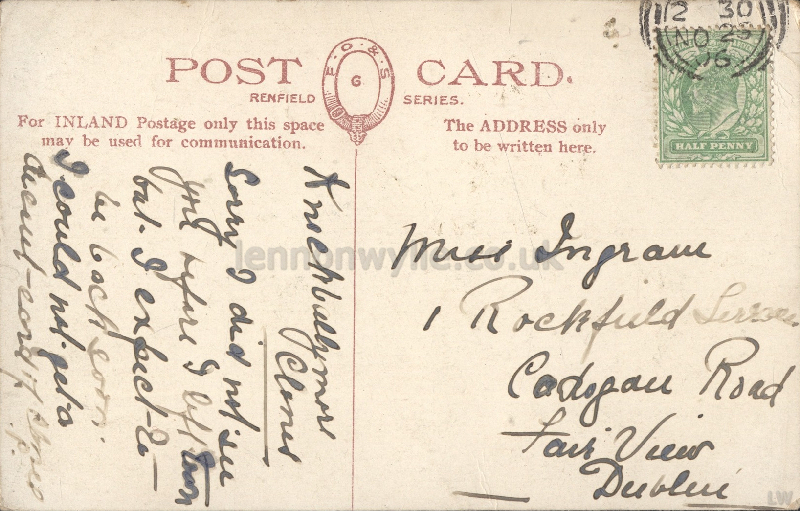 2 30
NO 23
06
POST CARD.
F. O & S
G
RENFIELD SERIES.
For INLAND Postage only this space
may be used for communication.
The ADDRESS only
to be written here.
HALF PENNY
Knockballymore
Clones
Sorry I did not see
you before I left town
but I expect to
be back soon.
I could not get a
decent card of Clones
Miss Ingram
1 Rockfield Terrace
Cadogan Road
Fair View
Dublin
lennonwylie.co.uk
LW